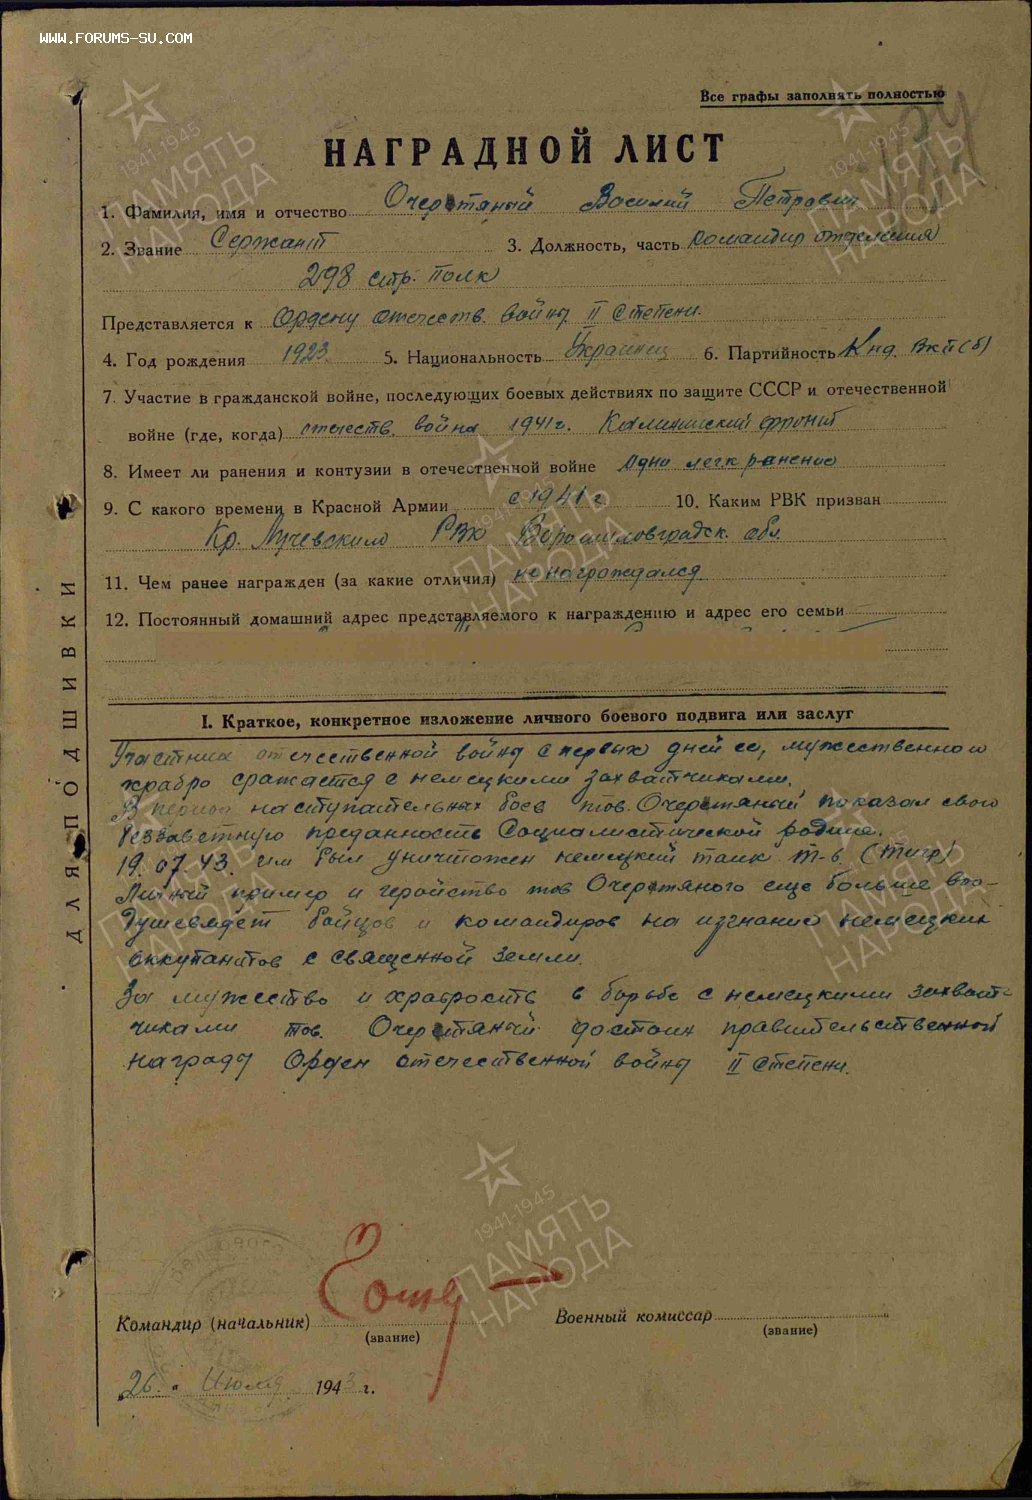 WWW.FORUMS-SU.COM
Все графы заполнять полностью
НАГРАДНОЙ ЛИСТ
1. Фамилия, имя и отчество Очеретяный Василий Петрович
2. Звание Сержант 3. Должность, часть командир отделения
298 стр. полк
Представляется к Ордену отечеств. войны II степени.
4. Год рождения 1923 5. Национальность Украинец 6. Партийность Кнд. ВКП(б)
7. Участие в гражданской войне, последующих боевых действиях по защите СССР и отечественной
войне (где, когда) отечеств. война 1941г. Калининский фронт
8. Имеет ли ранения и контузии в отечественной войне одно легк ранение
9. С какого времени в Красной Армии с 1941 г 10. Каким РВК призван
Кр. Лучевским РВК Ворошиловградск. обл.
11. Чем ранее награжден (за какие отличия) не награждался
12. Постоянный домашний адрес представляемого к награждению и адрес его семьи
I. Краткое, конкретное изложение личного боевого подвига или заслуг
Участник отечественной войны с первых дней ее, мужественно и
храбро сражается с немецкими захватчиками.
В период наступательных боев тов. Очеретяный показал свою
беззаветную преданность Социалистической родине.
19.07.43. им был уничтожен немецкий танк Т-6 (тигр)
Личный пример и геройство тов Очеретяного еще больше воо-
душевляет бойцов и командиров на изгнание немецких
оккупантов с священной земли.
За мужество и храбрость в борьбе с немецкими захват-
чиками тов. Очеретяный достоин правительственной
награды Орден отечественной войны II степени.
Командир (начальник)
(звание)
Военный комиссар
(звание)
„26" Июля 1943 г.
ДЛЯ ПОДШИВКИ
1941-1945
ПАМЯТЬ
НАРОДА